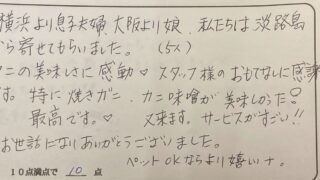 横浜より息子夫婦、大阪より娘、私たちは淡路島
から寄せてもらいました。(5人)
カニの美味しさに感動♡ スタッフ様のおもてなしに感謝
です。特に焼きガニ、カニ味噌が美味しかった!
最高です。♡ 又来ます。サービスがすごい!!
お世話になりありがとうございました。
ペットOKならより嬉しい+。
10点満点で 10 点